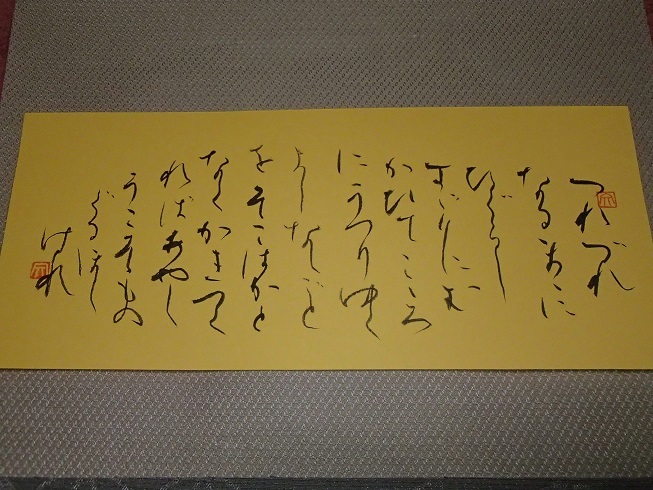 つれづれ
なるまゝに
ひぐらし
すゞりにむ
かひてこころ
にうつりゆく
よしなしごと
をそこはかと
なくかきつく
ればあやし
うこそもの
ぐるほし
けれ